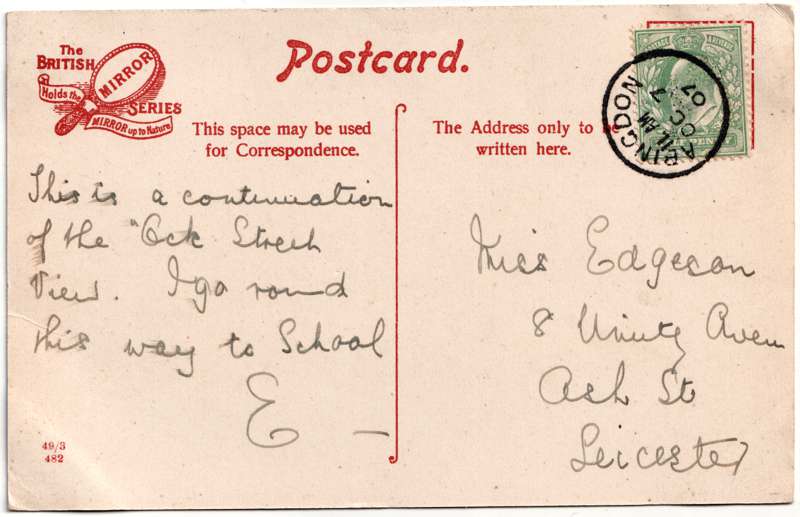 The
BRITISH
MIRROR
SERIES
Holds the
MIRROR up to Nature
Postcard.
This space may be used
for Correspondence.
The Address only to be
written here.
ABINGDON
11 AM
OC 7
07
This is a continuation
of the "Ock Street
View. I go round
this way to School
E –
Miss Edgeson
8 Unity Aven
Ash St
Leicester
49/3
482